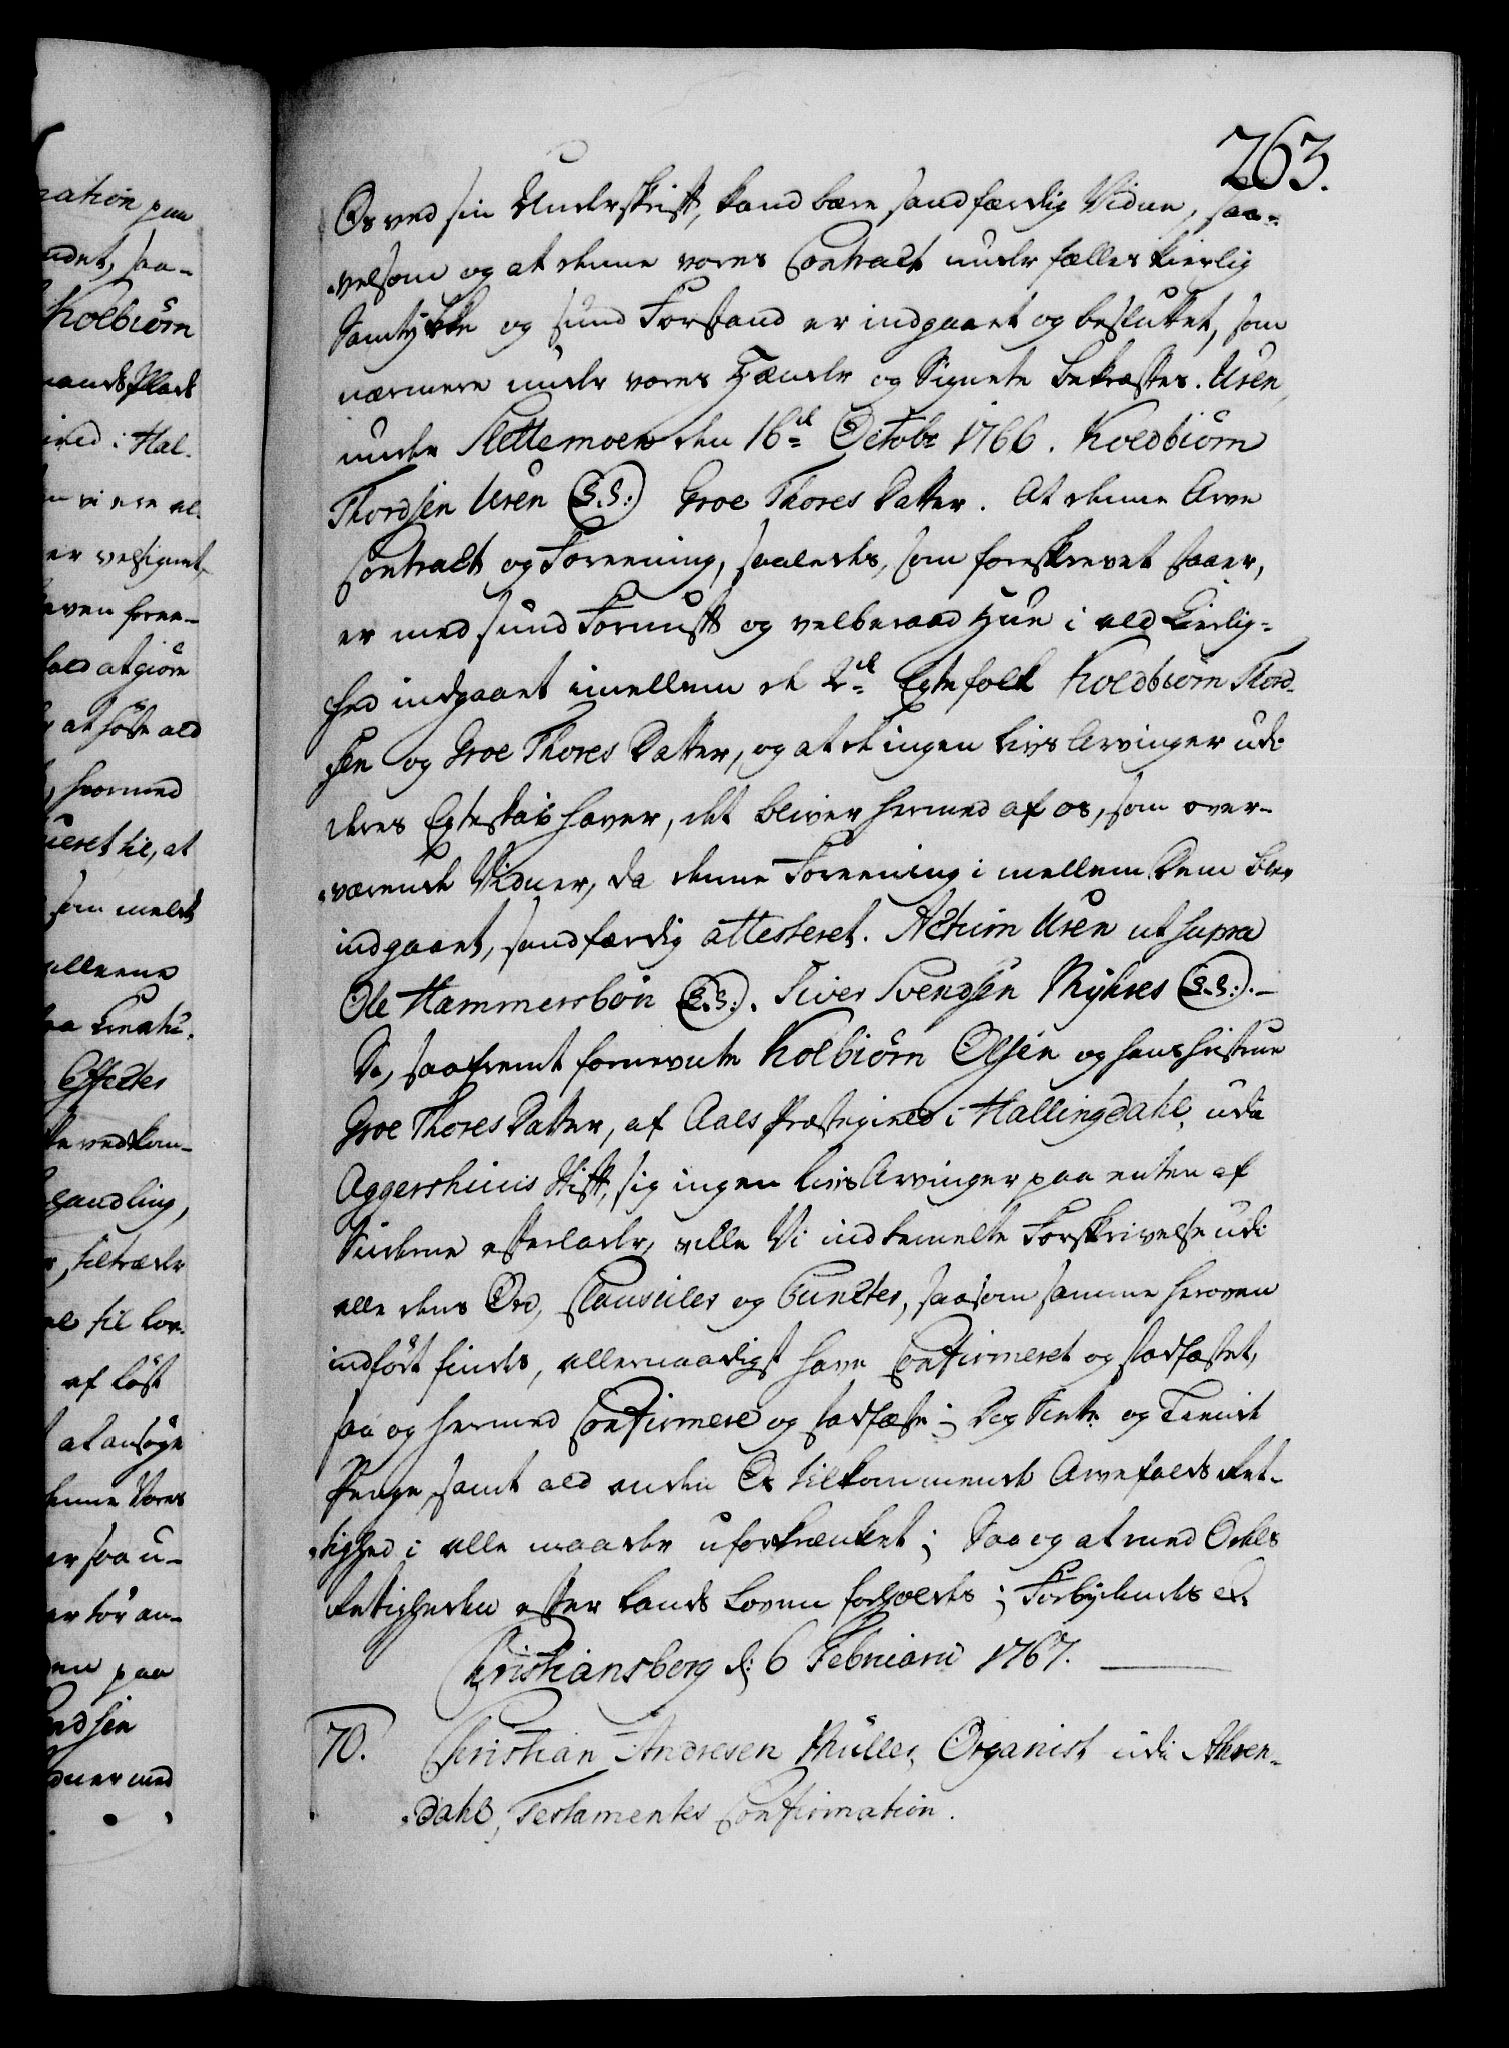 263.
Os ved sin Underskrift, kand bære sandfærdig Vidne, saa-
velsom og at denne vores Contract under fælles kierlig
Samtykke og sund Forstand er indgaaet og besluttet, som
nærmere under vores Hænder og Signete bekræftes. Uren
under Slettemoen den 16de Octobr 1766. Koldbiørn
Thordsen Uren (L.S.) Groe Thores Datter. At denne Arve
Contract og Foreening, saaledes, som foreskrevet staaer,
er med sund Fornuft og velberaad Hue i ald Kierlig-
hed indgaaet imellem de 2de Egtefolk Koldbiørn Thord-
sen og Groe Thores Datter, og at de ingen Livs Arvinger udi
deres Egteskab haver, det bliver hermed af os, som over-
værende Vidner, da denne Foreening imellem Dem blev
indgaaet, sandfærdig attesteret. Actum Uren ut supra
Ole Hammersbøn (L.S.). Siver Svendsen Myhres (L.S.).
Da, saafremt fornevnte Kolbiørn Olsen og hans Hustrue
Groe Thores Datter, af Aals Præstegield i Hallingdahl, udi
Aggershuus Stift, sig ingen Livs Arvinger paa enten af
Siderne efterlader, ville Vi indbemelte Forskrivelse udi
alle dens Ord, Clausuler og Puncter, saasom samme heroven
indført findes, allernaadigst have Confirmeret og stadfæstet,
saa og hermed Confirmere og stadfæste; Dog Siette og Tiende
Penge, samt ald anden Os tilkommende Arvefalds Ret-
tighed i alle maader uforkrænket; Saa og at med Odels
Rettigheden efter Lands Loven forholdes; Forbydendes etc.
Christiansborg d: 6 Februarii 1767.
70. Christian Andresen Müller, Organist udi Ahren-
dahl, Testamentes Confirmation.